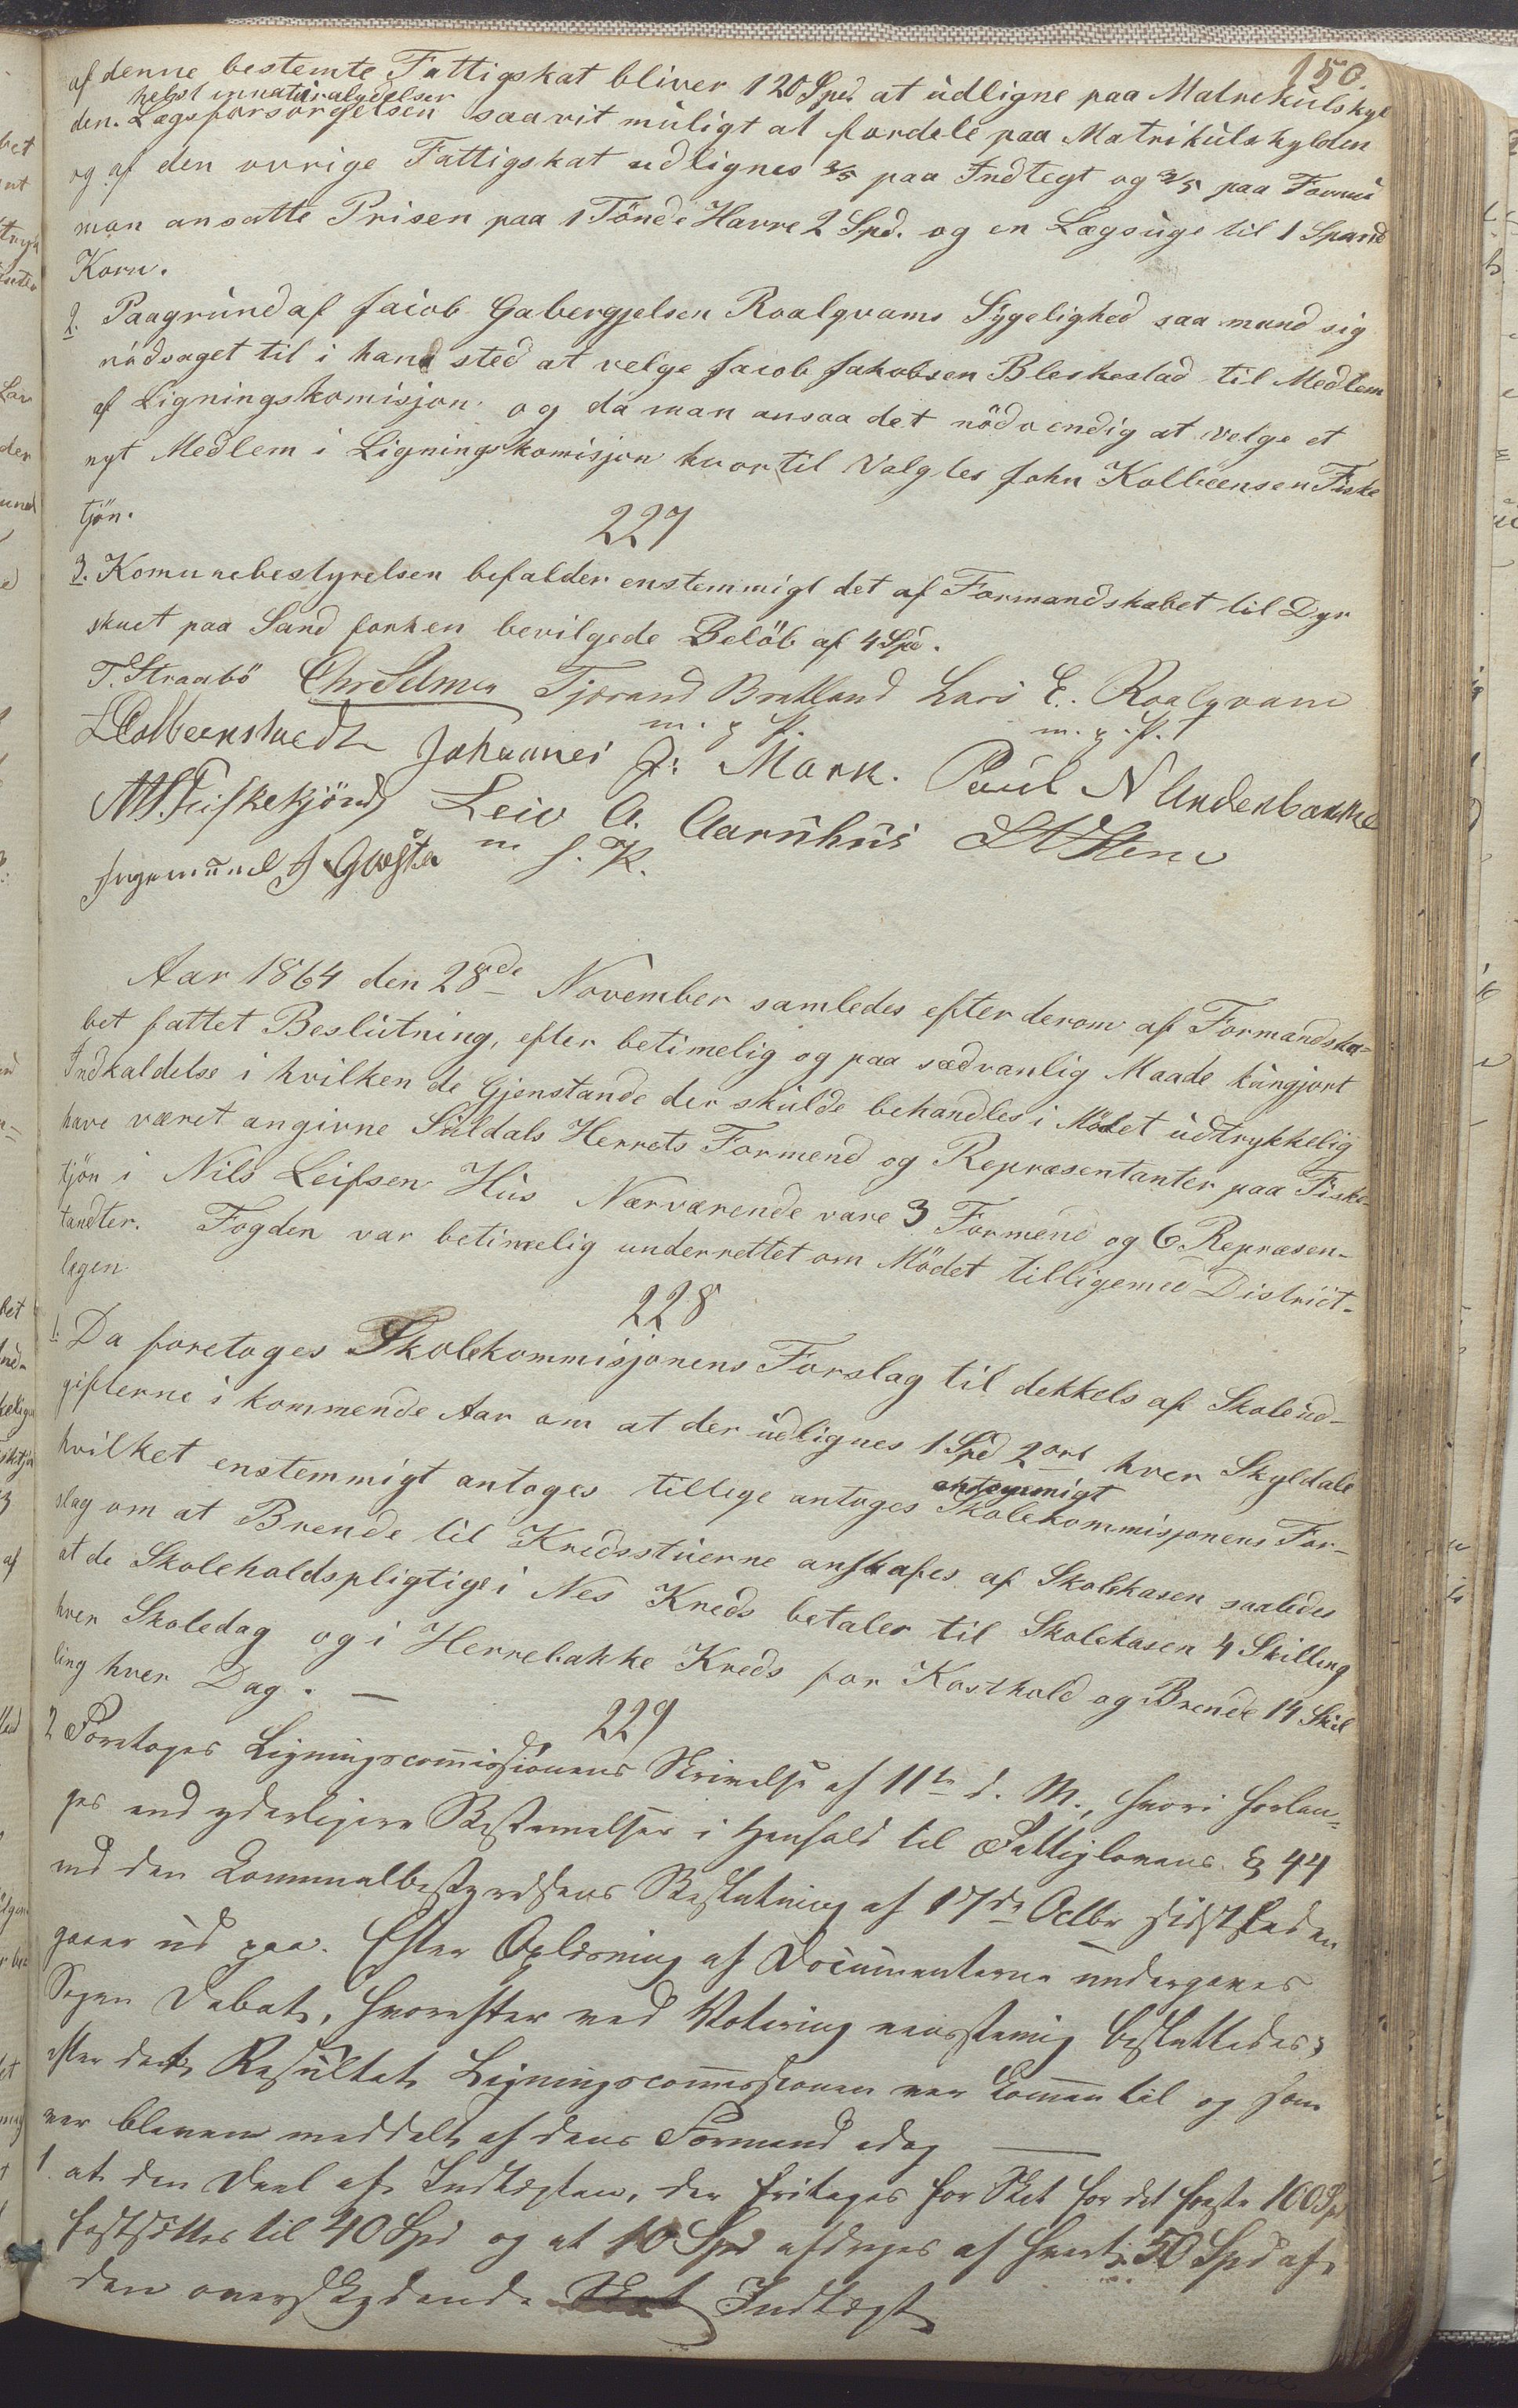 150.
af denne bestemte Fattigskat bliver 120 Spd. at udligne paa Matrekulskyl
helst innaturalydelser
den. Lægsforsørgelsen saavit muligt at fordele paa Matrikulskylden
og af den øvrige Fattigskat udlignes 3/5 paa Indtegt og 2/5 paa Formu
man ansatte Prisen paa 1 Tönde Havre 2 Spd. og en Lægsuge til 1 Spand
Korn.
2. Paagrund af Jaicob Gabergjelsen Roalqvams Sygelighed saa mand sig
nödsaget til i hans sted at velge Jacob Jakobsen Bleskestad til Medlem
af Ligningskomisjon og da man ansaa det nödvendig at velge et
nyt Medlem i Ligningskomisjon hvortil Valgtes John Kolbeensen Fiske
tjön.
227
3. Komunebestyrelsen befalder enstemmigt det af Formandskabet til Dyr
skuet paa Sand forhen bevilgede Belöb af 4 Spd.
T. Straabö Chr Selmer Tjerand Bratland Lars E. Roalqvam
m. p. P. m. p. P.
L Colbeenstvedt Johannes J: Mork. Paul N Underbakke
Fiskekjönd Leiv A. Aarhus
Ingemund J Gvæsta m. f. P.
Aar 1864 den 28de November samledes efter derom af Formandska=
bet fattet Beslutning, efter betimelig og paa sædvanlig Maade kungjort
Indkaldelse i hvilken de Gjenstande der skulde behandles i Mödet udtrykkelig
have været angivne Suldals Herrets Formend og Repræsentanter paa Fiske-
tjön i Nils Leifsen Hus Nærværende vare 3 Formend og 6 Repræsen-
tandter. Fogden var betimelig underrettet om Mödet tilligemed District-
lægen
228
1. Da foretoges Skolekommisjonens Forslag til dekkels af Skoleud-
gifterne i kommende Aar om at der udlignes 1 Spd 2 ort hver Skyldale
hvilket enstemmigt antoges tillige antoges enstemmigt Skolekommisjonens For-
slag om at Brende til Kredsstuerne anskafes af Skolekasen saaledes
at de Skoleholdspligtige i Nes Kreds betaler til Skolekasen 4 Skilling
hver Skoledag og i Herrebakke Kreds for Kosthold og Brende 14 Skil
ling hver Dag. —
229
2 Foretoges Ligningscommissionens Skrivelse af 11te d. M., hvori forlan=
ges end yderligere Bestemmelser i Henhold til Fattiglovens § 44
end den Communalbestyrelsens Beslutning af 17de Octbr sidstleden
gaaer ud paa. Efter Oplæsning af Documenterne undergaves
Sagen Debat, hvorefter ved Votering eenstemig besluttedes,
efter det Resultat Ligningscommissionen var kommen til og som
var bleven meddelt af dens Formand idag —
1. at den Deel af Indtægten, der fritages for Skat for det første 100 Spd
fastsættes til 40 Spd og at 10 Spd afdrages af hvert 50 Spd af
den overskydende Skat Indtægt